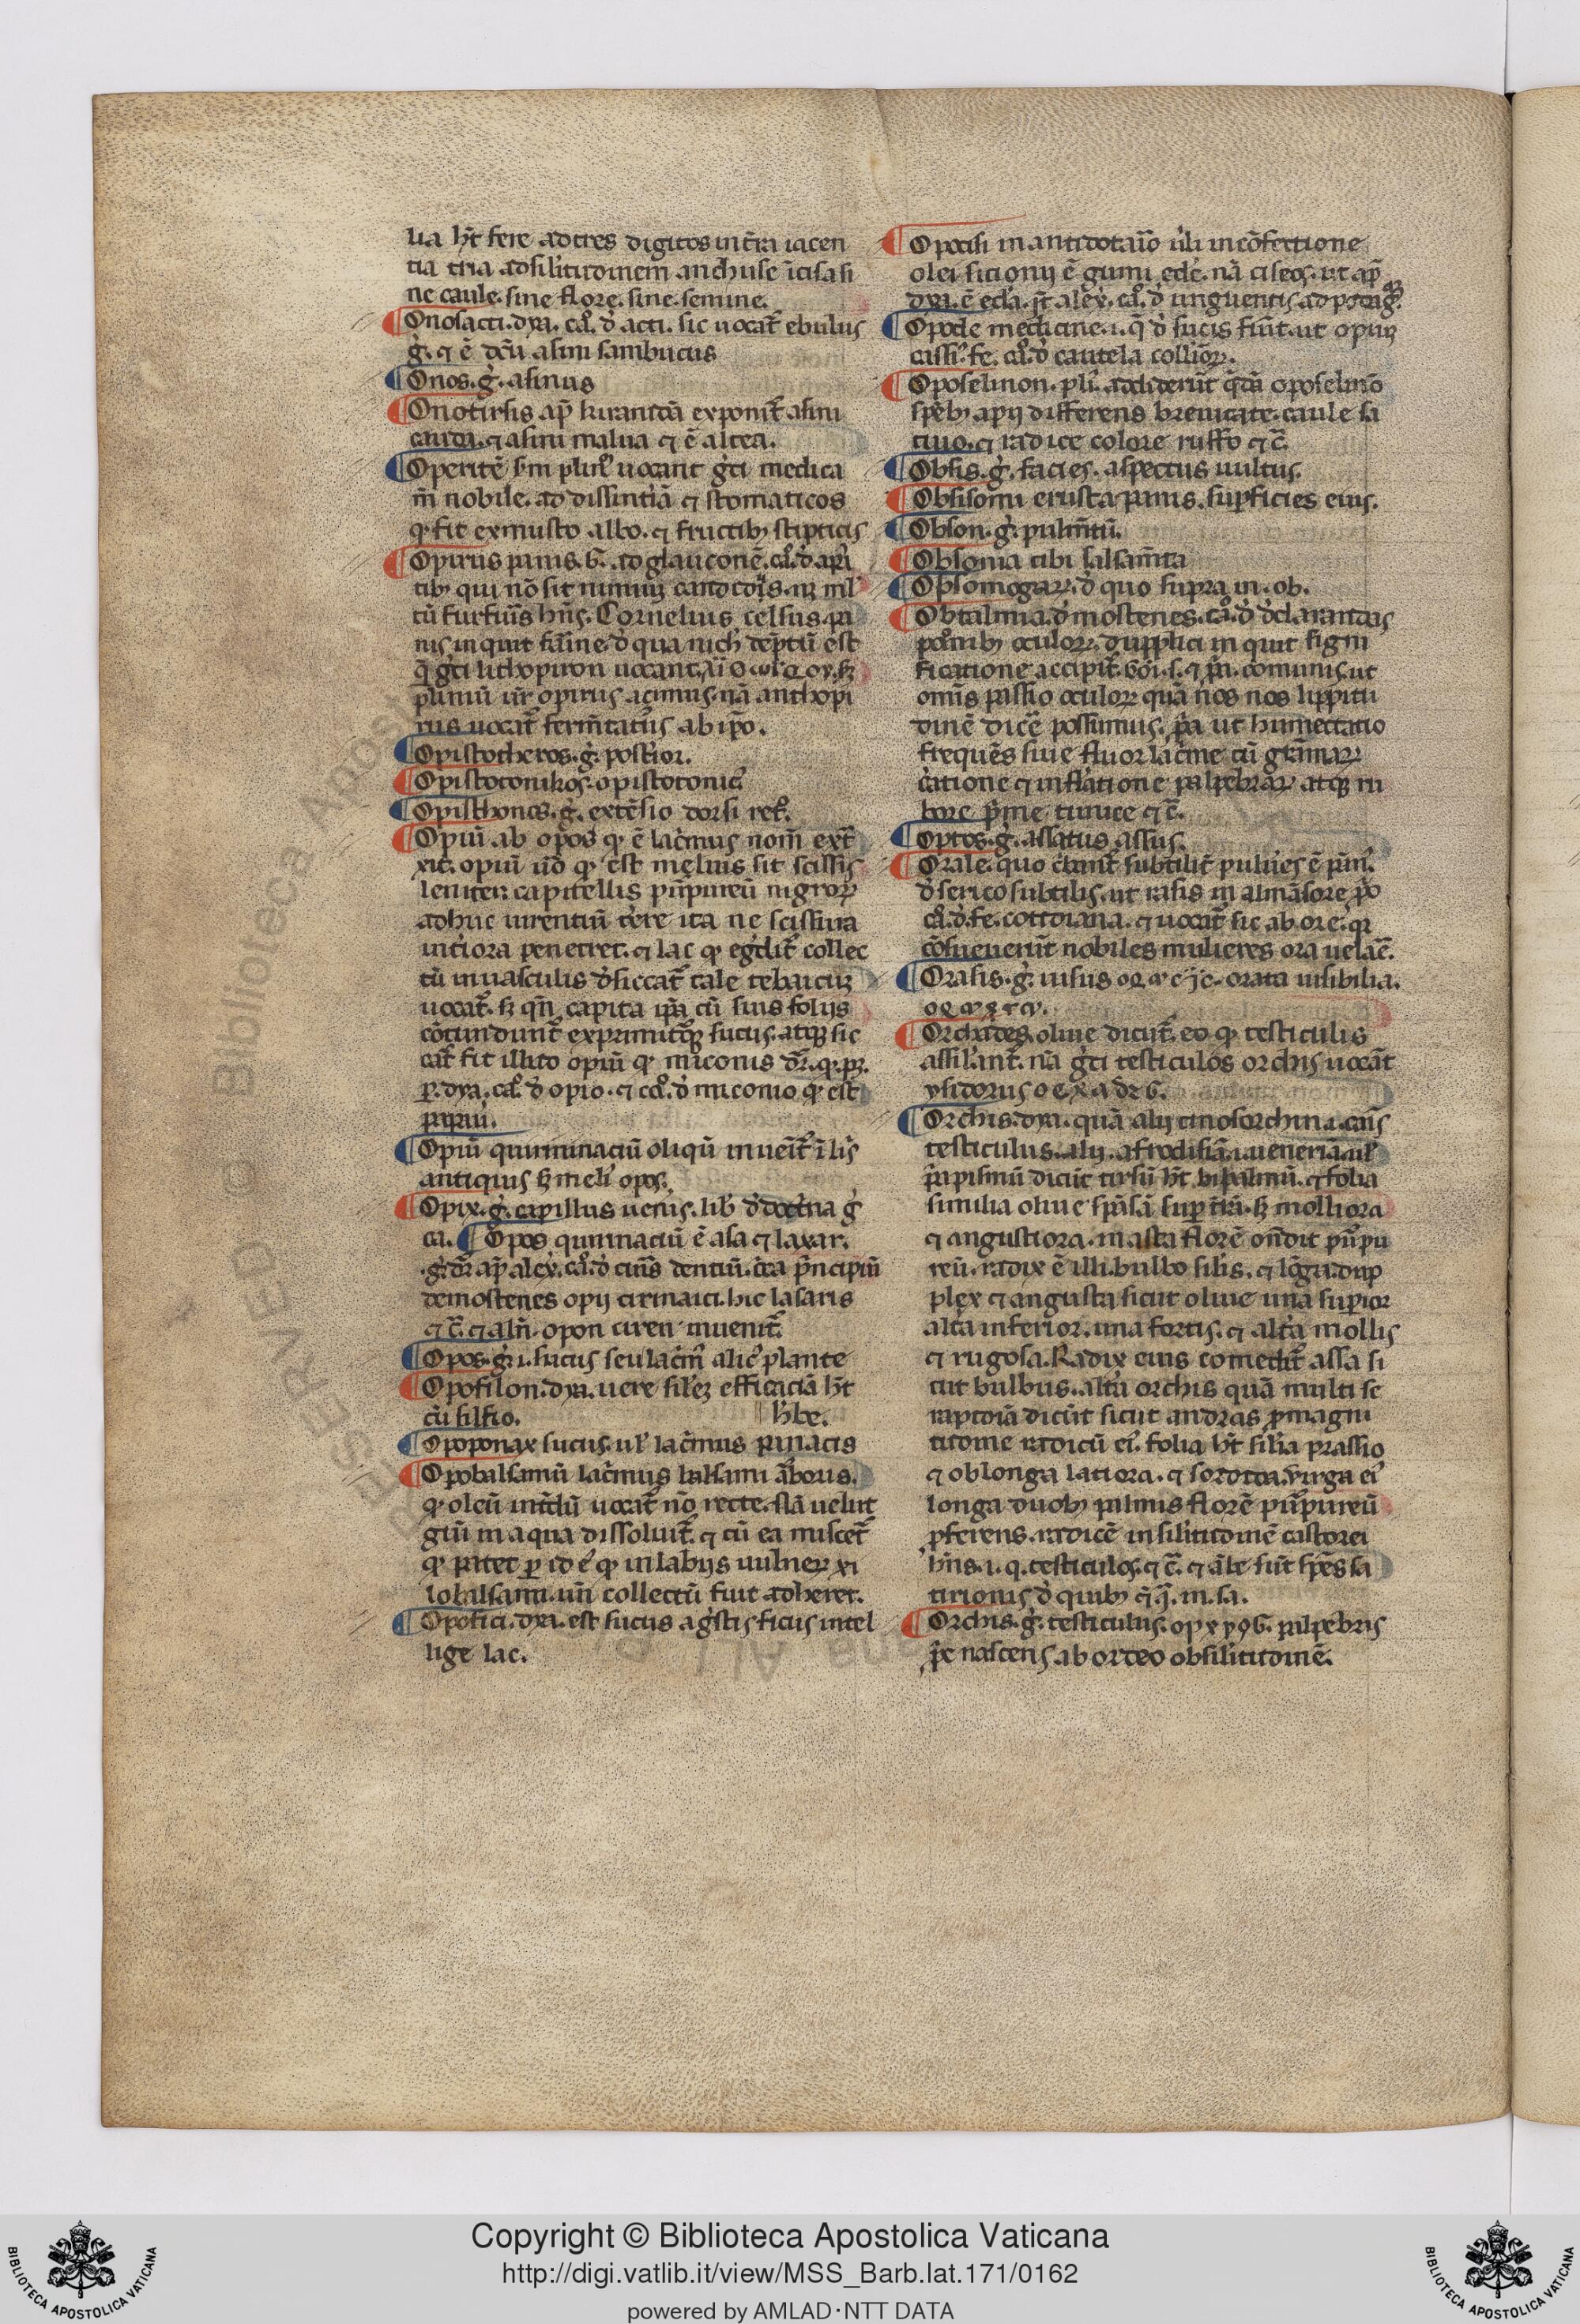 lia hñt fere ad tres digitos in t̄ra iacen
tia tria ad silitudinem anchuse īcisa si
ne caule. sine flore. sine semine.
Onosacti. dya. ca. d̓ acti. sic uocat̄ ebulus
g̓. ⁊ ē dcū asini sambucus
Onos. g̓. asinus
Onotirsis ap̄ kirannidā exponit̄ asini
cardi. ⁊ asini malua ⁊ ē altea.
uocant gci medica
m̄ nobile. ad dissintiā ⁊ stomaticos
q fit ex musto albo. ⁊ fructib stipticis
Opirus panis. G. ad glauconē. ca. d̓
tib qui nō sit
cū furfuris hñs. Cornelius celsus. pa
nis inquit
q̄ gci
opirus acimus. nā anthopi
rus uocat̄ fermtatus ab ip̄o.
Opistotheros. g̓. post̓ior.
Opistotonikos. opistotonic̓
Opisthonos. g̓. extēsio dorsi ret̓.
Opiū ab opos q ē lac̓mus nom̄ ext̄
xit. opiū ūo q est melius sit scissis
leniter capitellis purpureū nigror
adhuc uirentiū t̓ere ita ne scissura
int̓iora penetret. ⁊ lac q egdit̄ collec
tū in uasculis d̓siccat̄ tale tebaicuz
uocat̄. s qn̄ capita ip̄a cū suis folijs
cōtundunt̄ exprimitq sucus. atq sic
cat̄ fit illito opiū q miconis dr̄. q. p.
p. dya. ca. d̓ opio. ⁊ ca. d̓ miconio q est
papau̓.
Opiū quirinaciū oliqū inueīt̄ ī lis
antiquis s meli̓ opos.
Opix. g̓. capillus uenis. lib̓ d̓ doctna g̓
ca. Opos quirinaciū ē asa ⁊ laxar.
g̓. dr̄ ap̄ alex. ca. d̓ cura dentiū. circa p̄ncipiū
demostenes opij cirinaici. hic lasaris
⁊ c̄. ⁊ alr̄. opon ciren inuenit̄.
Opos. g̓. i. sucus seu lac̓m̄ alic̓ plante
Opofilon. dya. uere silez efficaciā hñt
cū silfio. h̓be.
Opoponax sucus. ul̓ lac̓mus panacis
Opobalsamū lac̓mus balsami arboris.
q oleū int̓dū uocat̄ nō recte. stā uelut
gūi in aqua dissoluit̄. ⁊ cū ea miscet̄
q patet p id ē q in labijs uulner xi
lobalsami. un̄ collectū fuit adheret.
Opofici. dya. est sucus ag̓stis ficus intel
lige lac.
Opocisi in antidotario ubi in cōfectione
olei sicionij ē gumi edē. nā ciseos. ut ap̄
dya. ē edā. pt alex. ca. d̓ unguentis ad podag̓.
Opode medicine. i. q̄ d̓ sucis fiūt. ut opuij
cassi. fe. ca. d̓ cautela collior.
Oposelinon. pli. addiderūt q̄dā oposelinō
spēb apij differens breuitate. caule sa
tiuo. ⁊ radice colore ruffo ⁊ c̄.
Obsis. g̓. facies. aspectus uultus.
Obsisomi crusta panis. supficies eius.
Obson. g̓. pulm̄tū.
Obsonia cibi salsam̄ta
Opsomogar. d̓ quo supra in. ob.
Obtalmia. d̓mostenes. ca. d̓ d̓clarandis
passionib oculor. dupplici inquit signi
ficatione accipit̄. ⁊ p̄a. comunis. ut
omīs passio oculor quā nos nos lippitu
dinē dicere possumus. p̄a ut humectatio
frequēs siue fluor lac̓me cū
catione ⁊ inflatione palpebrar atq ru
bore p̄me tunice ⁊ c̄.
Optos. g̓. assatus assus.
Orale. quo cbant̄ subtilit̄ puluies ē pān̄.
d̓ serico subtilis. ut rasis in almāsore
ca. d̓. fe. cottidiana. ⁊ uocat̄ sic ab ore. q̄
cōsueuerūt nobiles mulieres ora uelaē.
Orasis. g̓. uisus orata uisibilia.
Orchides. oliue dicūt̄. eo q testiculis
assilant̄. nā gci testiculos orchis uocāt
ysidorus
Orchis. dya. quā alij cinosorchin. i. canis
testiculus. alij. afrodisiā. i. ueneriā. ul̓
p̄apismū dicūt tirsū hñt bipalmū. ⁊ folia
similia oliue spāsā sup t̄rā. s molliora
⁊ angustiora. in asta florē ondit purpu
reū. radix ē illi. bulbo silis. ⁊ lōga. dup
plex ⁊ angusta sicut oliue una supior
alt̓a inferior. una fortis. ⁊ alt̓a mollis
⁊ rugosa. Radix eius comedit̄ assa si
cut bulbus. alt̓a orchis quā multi se
rapioiā dicūt sicut andras p̄ magni
tudine radicū ei̓. folia hñt silia prassio
⁊ oblonga latiora. ⁊ sordida. Virga ei̓
longa duob palmis florē purpureū
pferens. radicē in silitudinē castorei
hñs. i. q. testiculos. ⁊ c̄. ⁊ ābe sūt spēs sa
tirionis d̓ quib q̄. q̄. in. sa.
Orchis. g̓. testiculus. palpebris
p̄c nascens ab ordeo ob silitudinē.
Copyright © Biblioteca Apostolica Vaticana
http://digi.vatlib.it/view/MSS_Barb.lat.171/0162
powered by AMLAD·NTT DATA
BIBLIOTECA APOSTOLICA VATICANA
BIBLIOTECA APOSTOLICA VATICANA